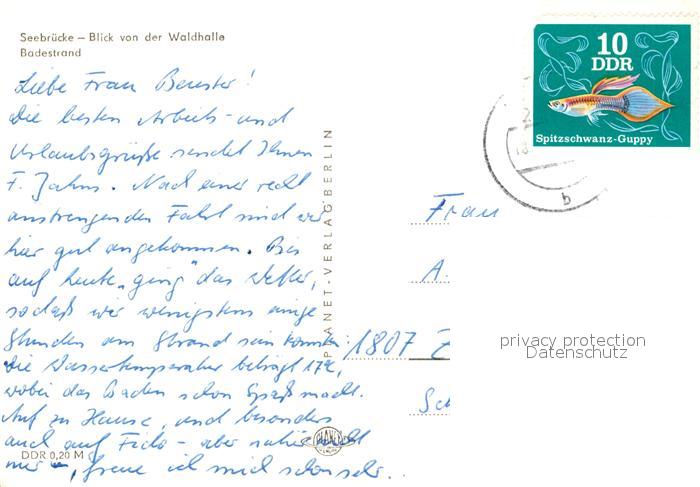 Seebrücke – Blick von der Waldhalle
Badestrand
Liebe Frau !
Die besten Arbeits- und
Urlaubsgrüße sendet Ihnen
F. Jahns. Nach einer recht
anstrengenden Fahrt sind wir
hier gut angekommen. Bis
auf heute „ging" das Wetter,
sodaß wir wenigstens einige
Stunden am Strand sein konnten.
Die Wassertemperatur beträgt 17°,
wobei das Baden schon Spaß macht.
Auf zu Hause, und besonders
auch auf Fido – aber natürlich nicht
nur –, freue ich mich schon sehr.
DDR 0,20 M
PLANET-VERLAG BERLIN
PLANET
10
DDR
Spitzschwanz-Guppy
b
Frau
A.
1807 Z
Sch
privacy protection
Datenschutz